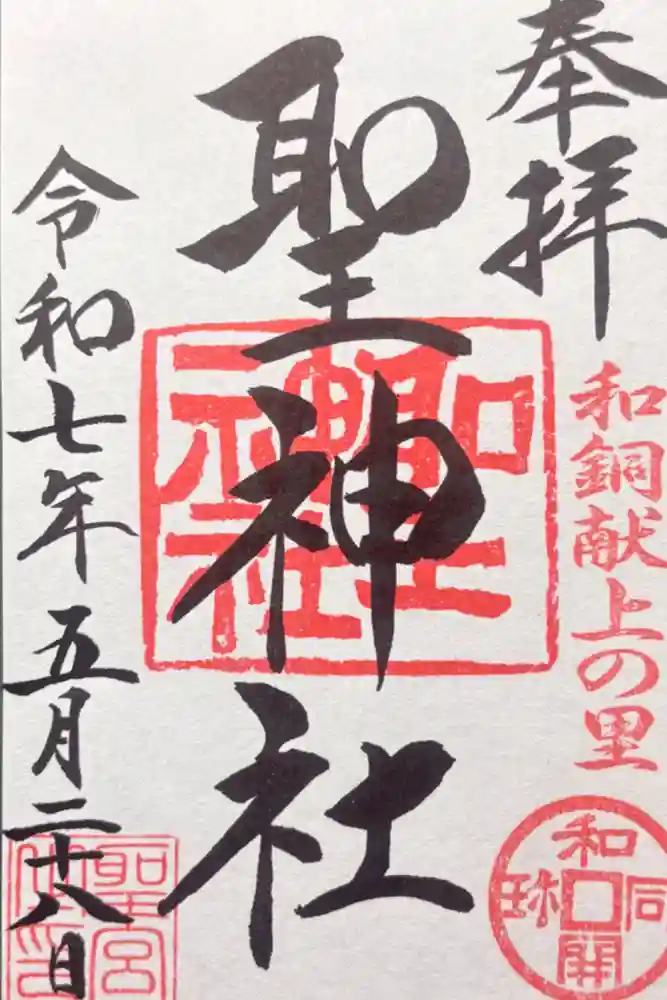 奉拝
和銅献上の里
和同開珎
聖神社
聖神社
令和七年五月二十八日